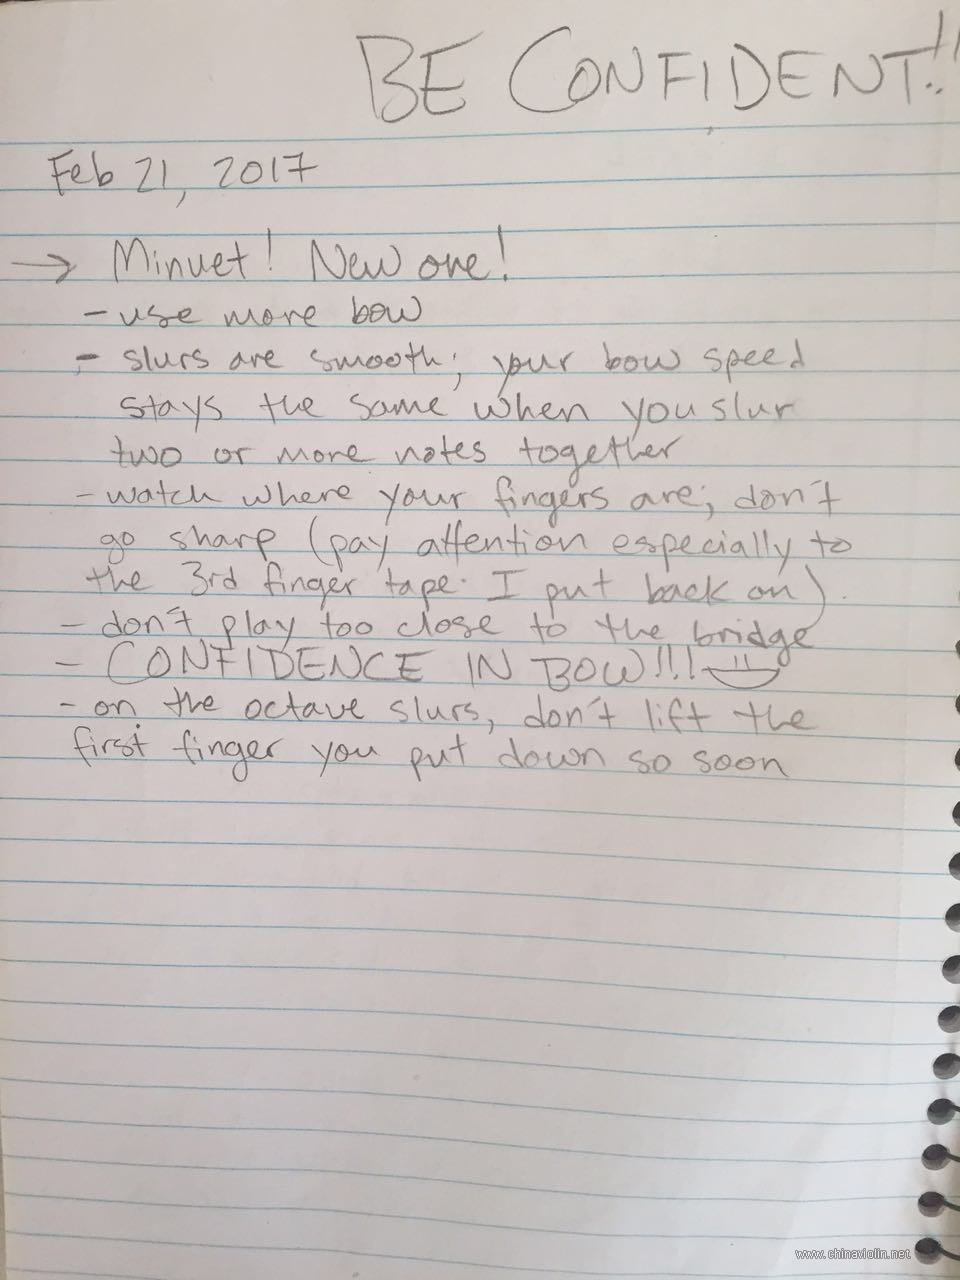 BE CONFIDENT!!
Feb 21, 2017
→ Minuet! New one!
- use more bow
- slurs are smooth; your bow speed
stays the same when you slur
two or more notes together
- watch where your fingers are; don't
go sharp (pay attention especially to
the 3rd finger tape I put back on).
- don't play too close to the bridge
- CONFIDENCE IN BOW!!!
- on the octave slurs, don't lift the
first finger you put down so soon
www.chinaviolin.net